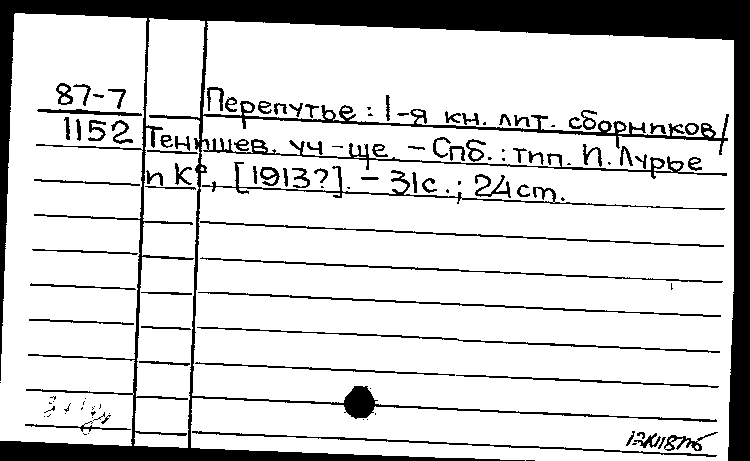 87-7
1152
Перепутье : 1-я кн. лит. сборников /
Тенишев. уч-ще. - Спб. : тип. И. Лурье
и К°, [1913?]. - 31с. ; 24 cm.